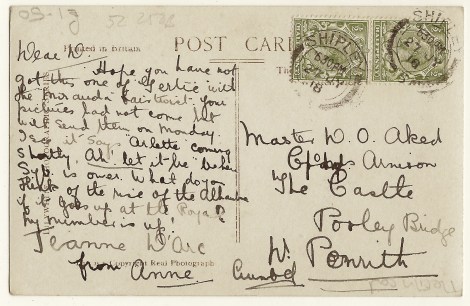 09-19
Printed in Britain
POST CARD
Dear W.
Hope you have not
got this one of Gertie with
the Miranda hairtwist. Your
pictures had not come yet
will send them on Monday.
I see it says Arlette coming
Shortly. Ah! let it be when
Syb. is over. What do you
think of the rise of the Alhambra
if it goes up at the Royal?
My number is up!
Jeanne D'arc
from Anne.
Copyright Real Photograph
SHIPLEY
6.30 PM
18
SHIPLEY
6.30 PM
18
Master W. O. Aked
The Castle
Pooley Bridge
Nr. Penrith
Cumbd